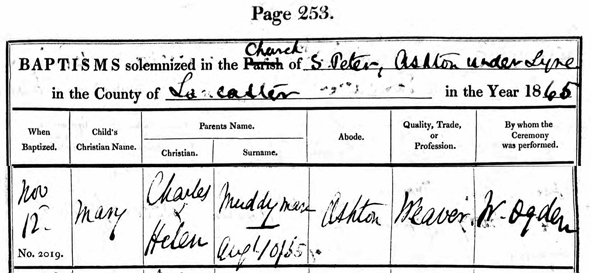 Page 253.
BAPTISMS solemnized in the Parish Church of St Peter, Ashton under Lyne
in the County of Lancaster in the Year 1865
When Baptized. Child's Christian Name. Parents Name. Christian. Surname. Abode. Quality, Trade, or Profession. By whom the Ceremony was performed.
Nov 12 Mary Charles & Helen Muddyman Ashton Weaver W. Ogden
No. 2019.